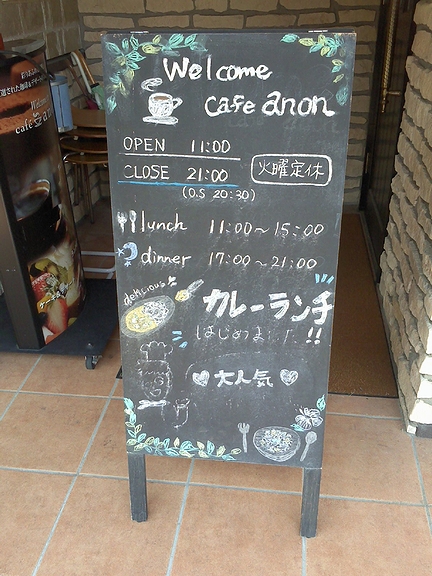 Welcome
cafe anon
OPEN 11:00
CLOSE 21:00
火曜定休
(O.S 20:30)
lunch 11:00～15:00
dinner 17:00～21:00
delicious
カレーランチ
はじめました!!
大人気
Welcome
cafe anon